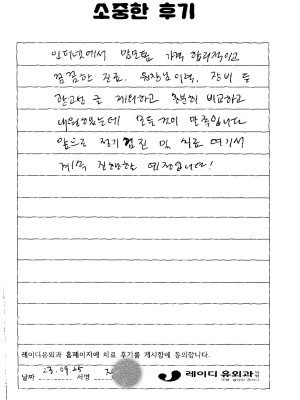 소중한 후기
인터넷에서 맘모톰 가격 합리적이고
꼼꼼한 진료, 원장님 이력, 장비 등
광고성 글 제외하고 충분히 비교하고
내원했는데 모든 것이 만족입니다
앞으로 정기 검진 및 치료 여기서
계속 진행할 예정입니다!
레이디유외과 홈페이지에 치료 후기를 게시함에 동의합니다.
날짜 23.09.25 서명
레이디유외과